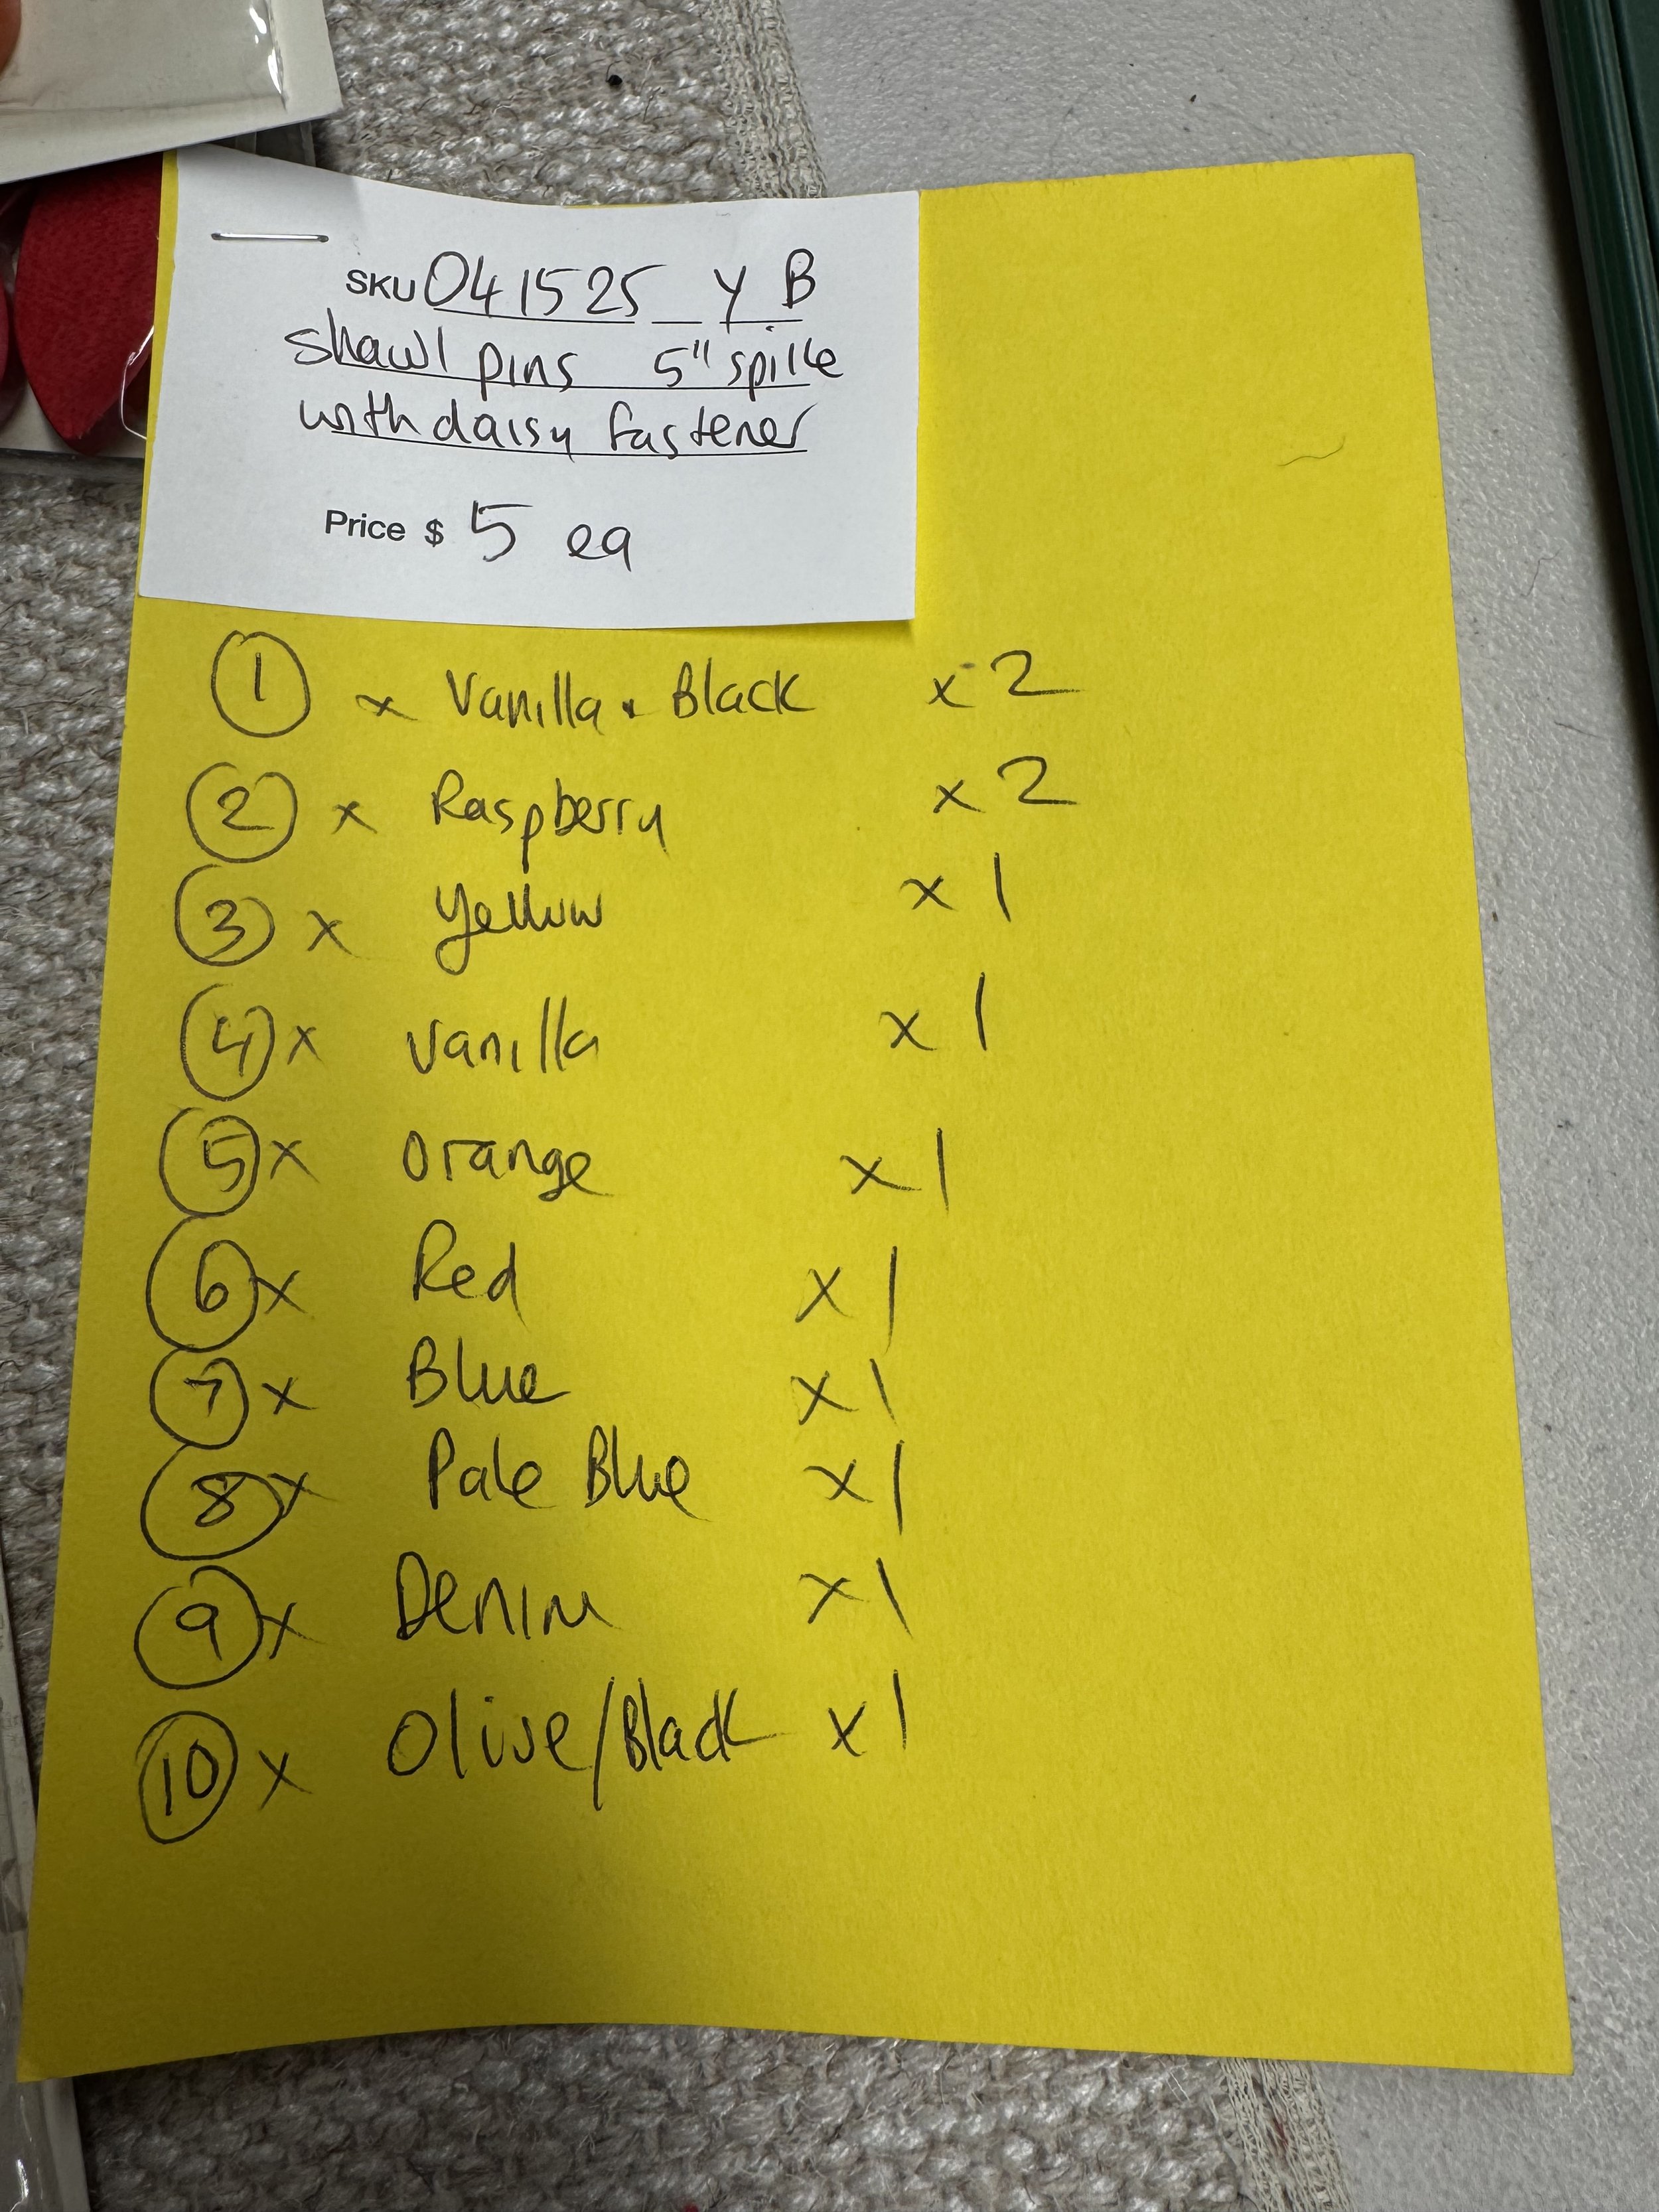 SKU 041525 _ Y B
Shawl pins 5" spike
with daisy fastener
Price $ 5 ea
1 x Vanilla . Black x 2
2 x Raspberry x 2
3 x Yellow x 1
4 x Vanilla x 1
5 x Orange x 1
6 x Red x 1
7 x Blue x 1
8 x Pale Blue x 1
9 x Denim x 1
10 x Olive/Black x 1